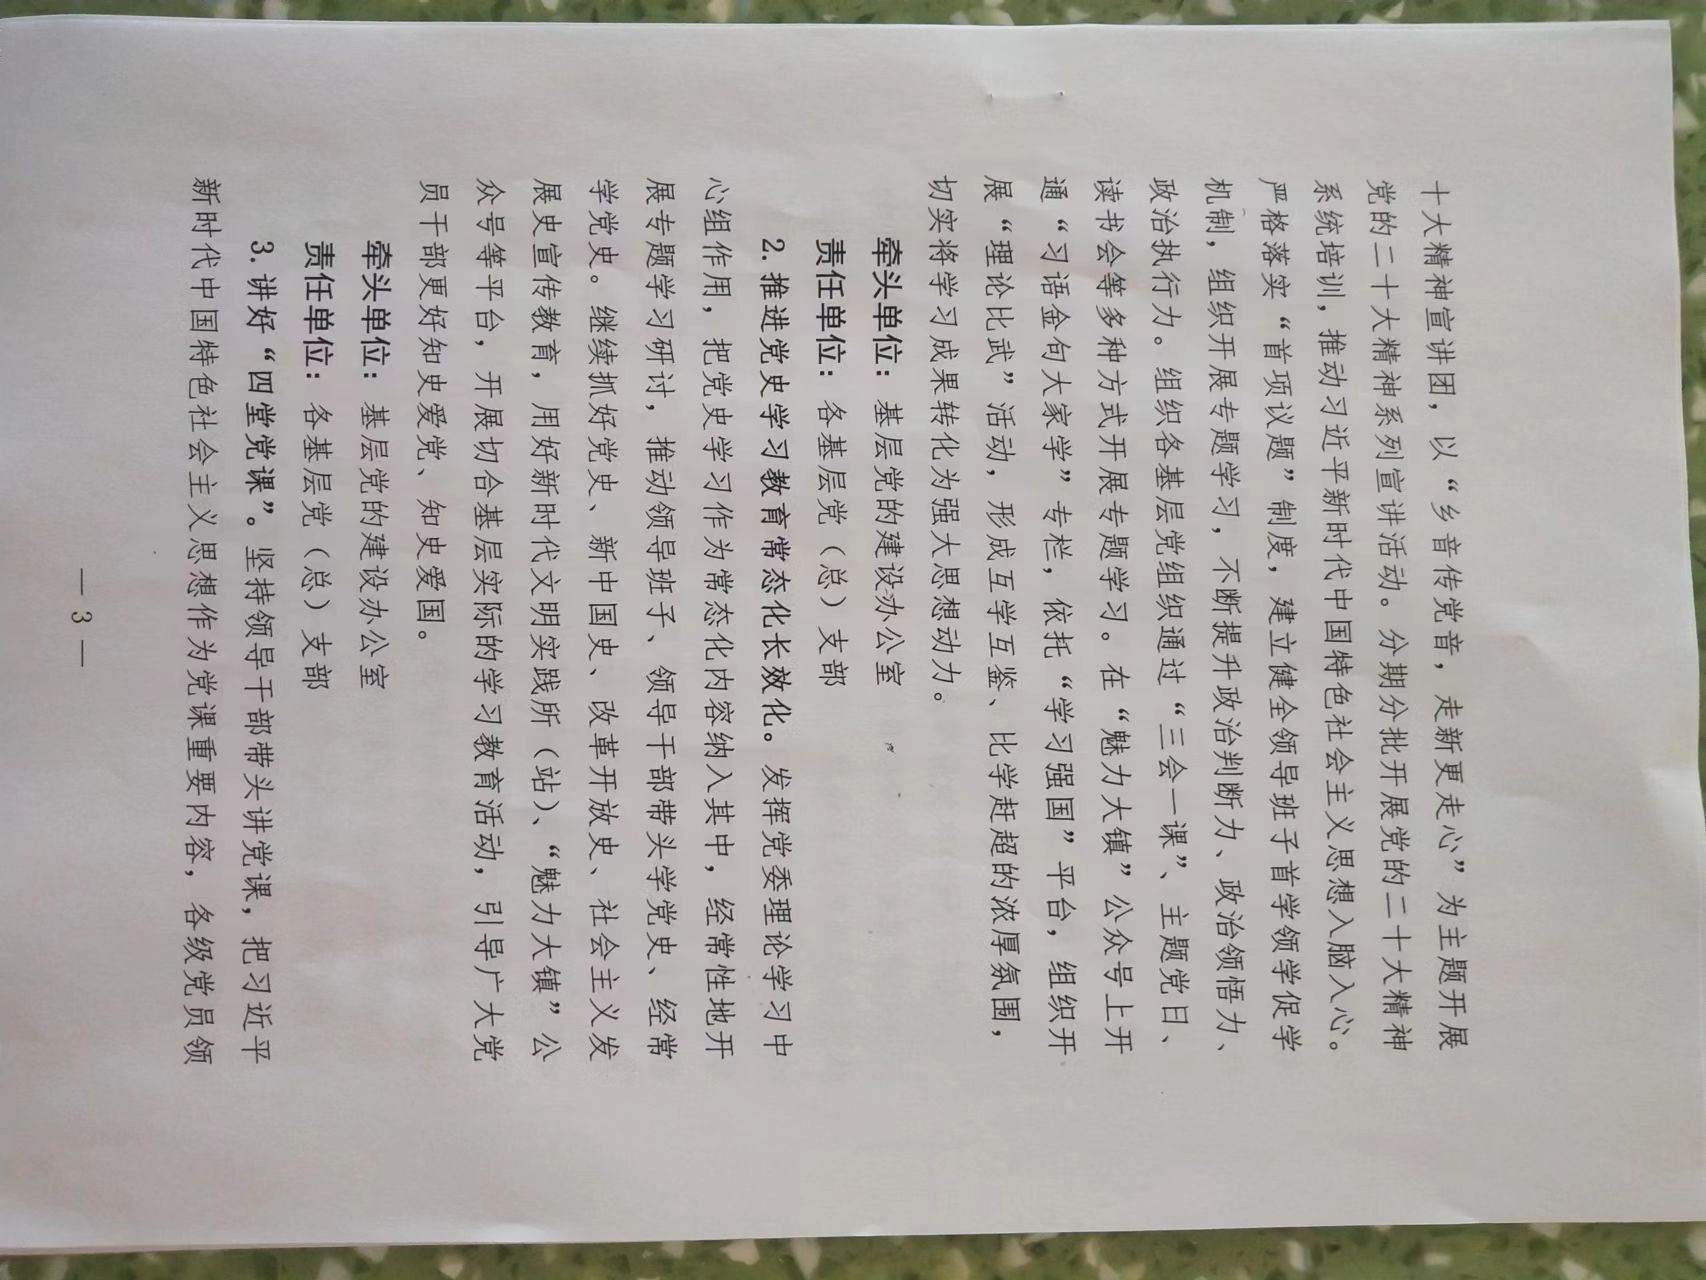 十大精神宣讲团，以“乡音传党音，走新更走心”为主题开展
党的二十大精神系列宣讲活动。分期分批开展党的二十大精神
系统培训，推动习近平新时代中国特色社会主义思想入脑入心。
严格落实“首项议题”制度，建立健全领导班子首学领学促学
机制，组织开展专题学习，不断提升政治判断力、政治领悟力、
政治执行力。组织各基层党组织通过“三会一课”、主题党日、
读书会等多种方式开展专题学习。在“魅力大镇”公众号上开
通“习语金句大家学”专栏，依托“学习强国”平台，组织开
展“理论比武”活动，形成互学互鉴、比学赶超的浓厚氛围，
切实将学习成果转化为强大思想动力。
牵头单位：基层党的建设办公室
责任单位：各基层党（总）支部
2. 推进党史学习教育常态化长效化。发挥党委理论学习中
心组作用，把党史学习作为常态化内容纳入其中，经常性地开
展专题学习研讨，推动领导班子、领导干部带头学党史、经常
学党史。继续抓好党史、新中国史、改革开放史、社会主义发
展史宣传教育，用好新时代文明实践所（站）、“魅力大镇”公
众号等平台，开展切合基层实际的学习教育活动，引导广大党
员干部更好知史爱党、知史爱国。
牵头单位：基层党的建设办公室
责任单位：各基层党（总）支部
3. 讲好“四堂党课”。坚持领导干部带头讲党课，把习近平
新时代中国特色社会主义思想作为党课重要内容，各级党员领
— 3 —